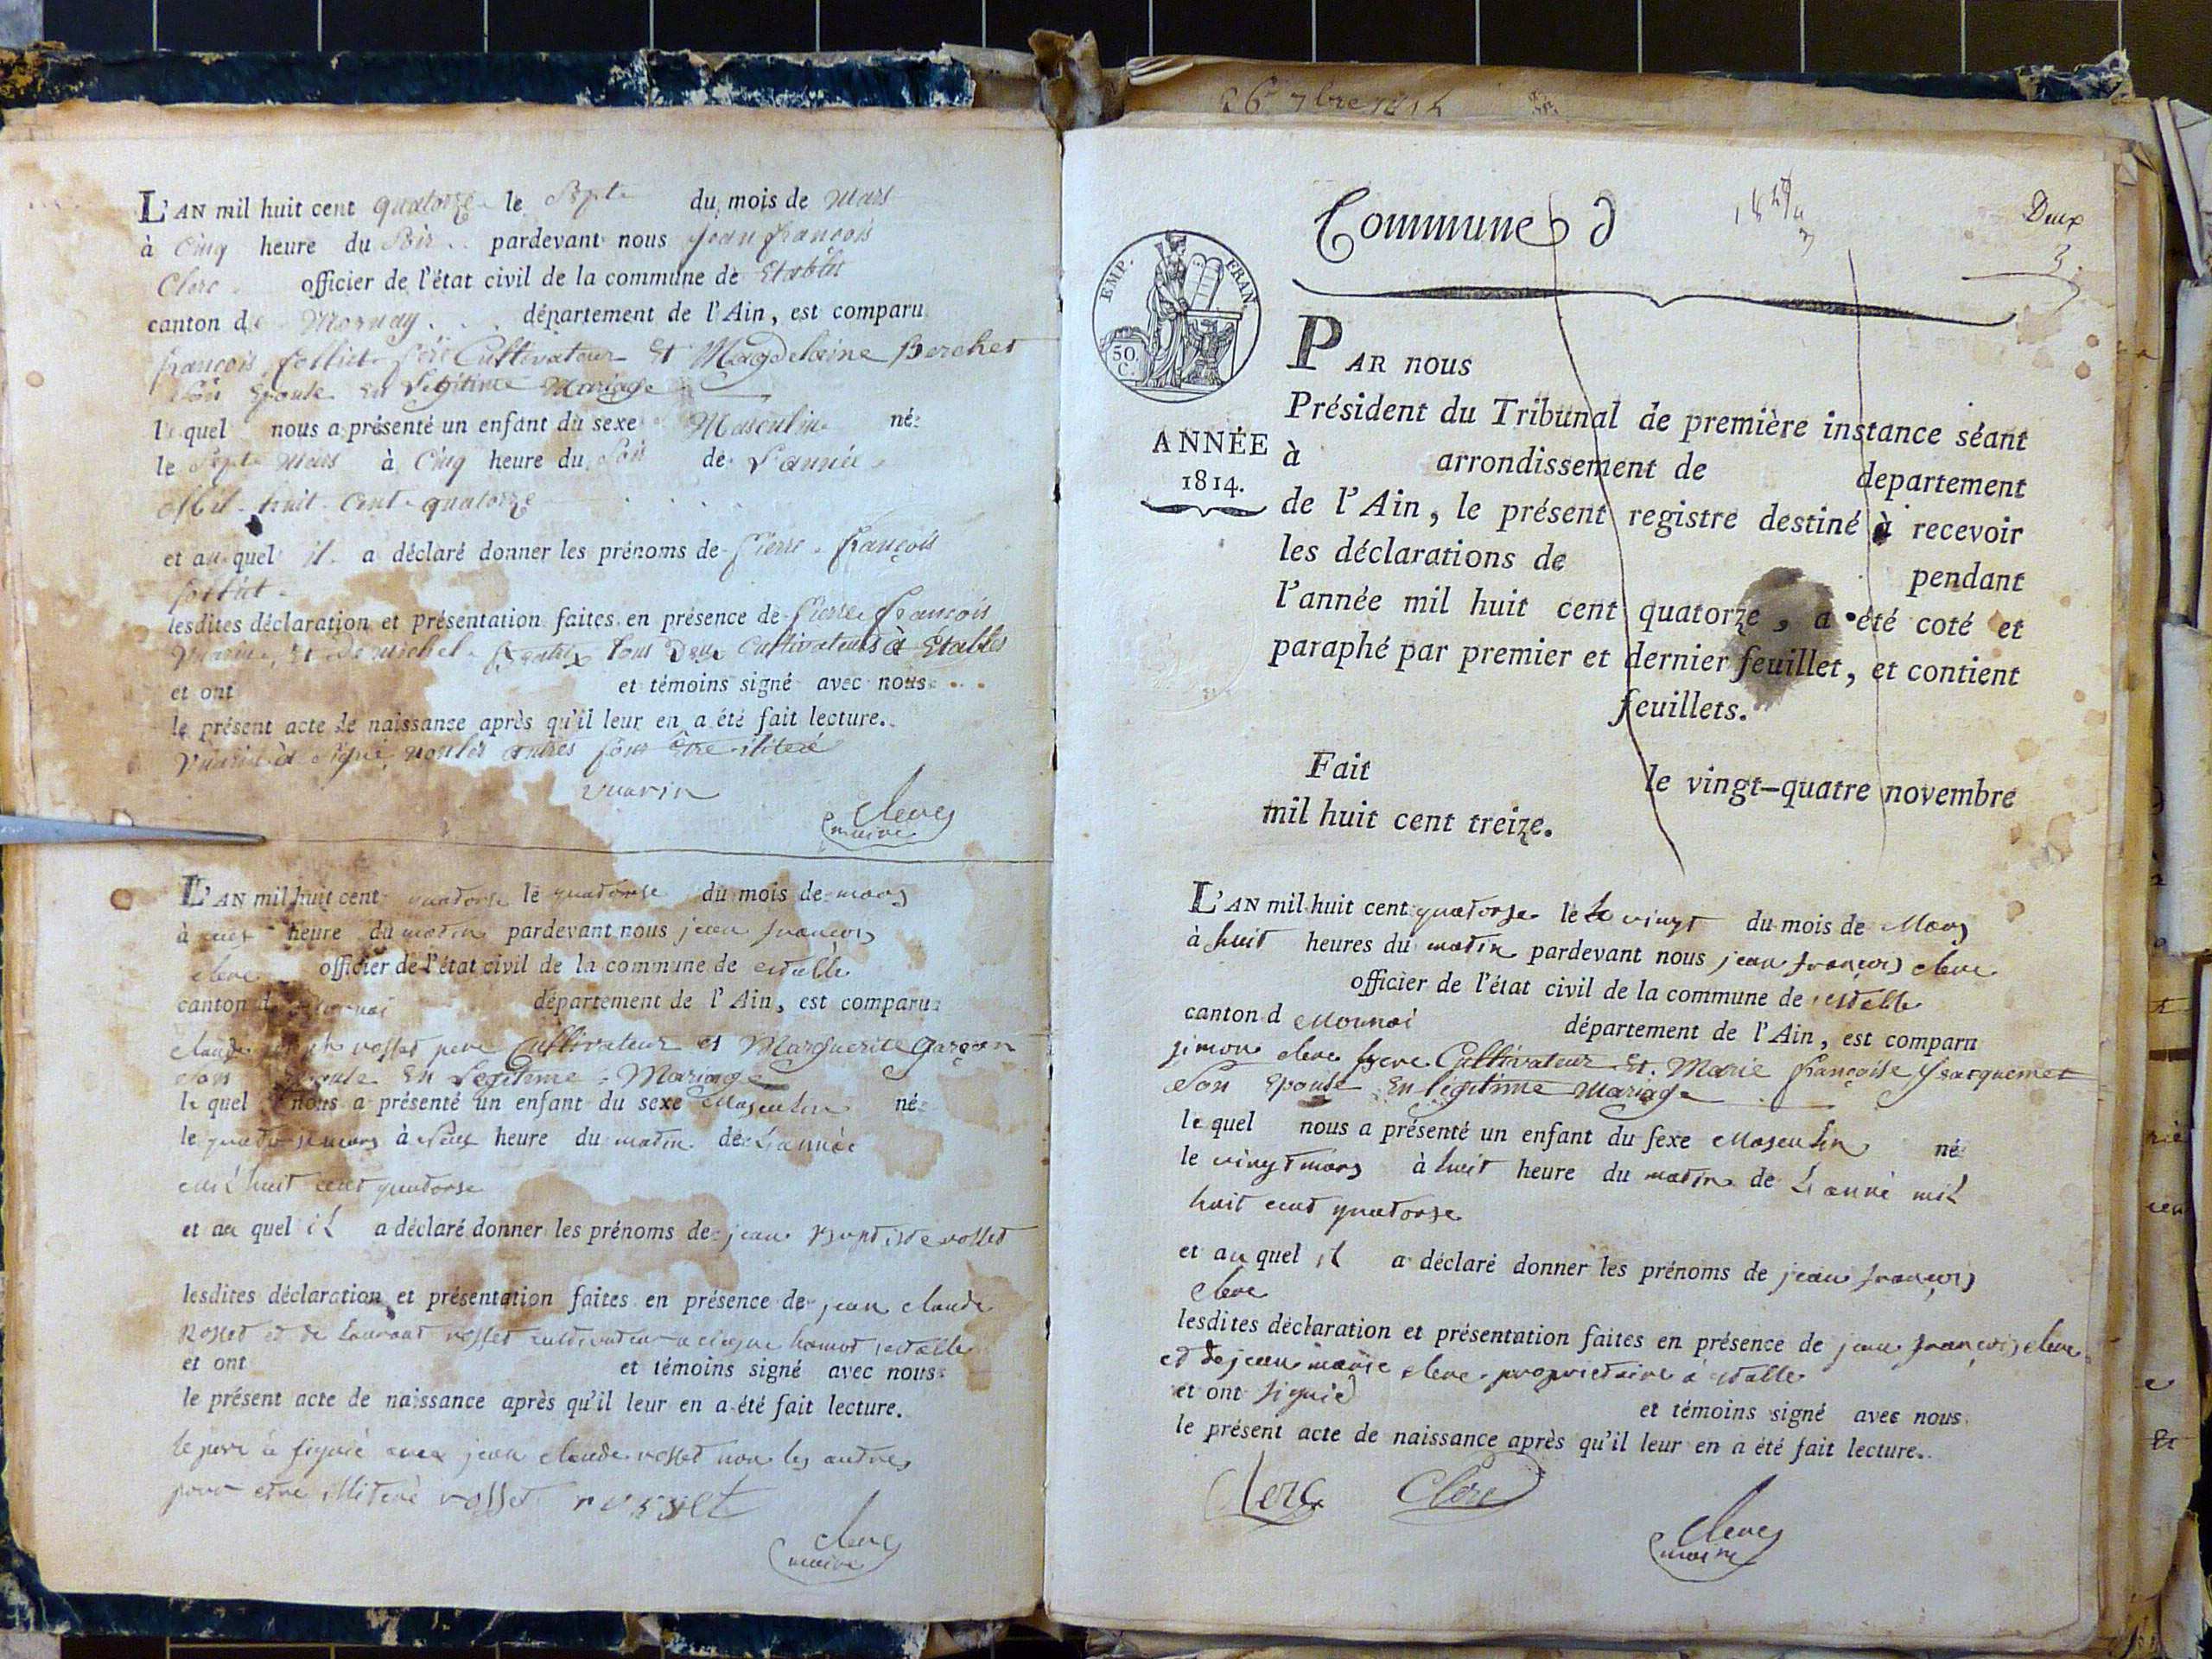 L'AN mil huit cent quatorze le Sept du mois de Mars
à Cinq heure du Soir pardevant nous jean françois
Clerc officier de l'état civil de la commune de Etables
canton de Mornay département de l'Ain, est comparu
françois père Cultivateur Et Magdelaine Berchet
Son Epouse En Légitime Mariage
le quel nous a présenté un enfant du sexe Masculin né
le Sept Mars à Cinq heure du Soir de L'année
Mil huit Cent quatorze
et au quel il a déclaré donner les prénoms de Pierre françois
lesdites déclaration et présentation faites en présence de Pierre françois
Vuarin, Et De michel tous Deux Cultivateurs à Etables
et ont et témoins signé avec nous
le présent acte de naissance après qu'il leur en a été fait lecture.
Vuarin à signé, non les autres pour être iliteré
vuarin
clerc
maire
L'AN mil huit cent quatorse le quatorse du mois de mars
à heure du matin pardevant nous jean françois
clerc officier de l'état civil de la commune de estable
canton d mornai département de l'Ain, est comparu
claude rosset pere Cultivateur et Marguerite Garçon
Son Epouse En Legitime Mariage
le quel nous a présenté un enfant du sexe Masculin né
le quatorse mars à heure du matin de L'année
mil huit cent quatorse
et au quel il a déclaré donner les prénoms de jean Baptiste rosset
lesdites déclaration et présentation faites en présence de jean claude
Rosset et de Laurant rosset cultivateur a estable
et ont et témoins signé avec nous
le présent acte de naissance après qu'il leur en a été fait lecture.
le pere à signié avec jean claude rosset non les autres
pour etre illiteré rosset rosset
clerc
maire
26 7bre 1814
Commune d
Deux
3
EMP. FRAN.
50.
C.
ANNÉE
1814.
PAR nous
Président du Tribunal de première instance séant
à arrondissement de departement
de l'Ain, le présent registre destiné à recevoir
les déclarations de pendant
l'année mil huit cent quatorze, a été coté et
paraphé par premier et dernier feuillet, et contient
feuillets.
Fait le vingt-quatre novembre
mil huit cent treize.
L'AN mil huit cent quatorse le Le vingt du mois de Mars
à huit heures du matin pardevant nous jean françois clerc
officier de l'état civil de la commune de estable
canton d Mornai département de l'Ain, est comparu
simon clerc pere Cultivateur Et Marie françoise Jacquemet
Son Epouse En légitime Mariage
le quel nous a présenté un enfant du sexe Masculin né
le vingt mars à huit heure du matin de L'anné mil
huit cent quatorse
et au quel il a déclaré donner les prénoms de jean françois
clerc
lesdites déclaration et présentation faites en présence de jean françois clerc
et de jean marie clerc proprietaire à estable
et ont signié et témoins signé avec nous
le présent acte de naissance après qu'il leur en a été fait lecture.
Clerc Clerc
clerc
maire